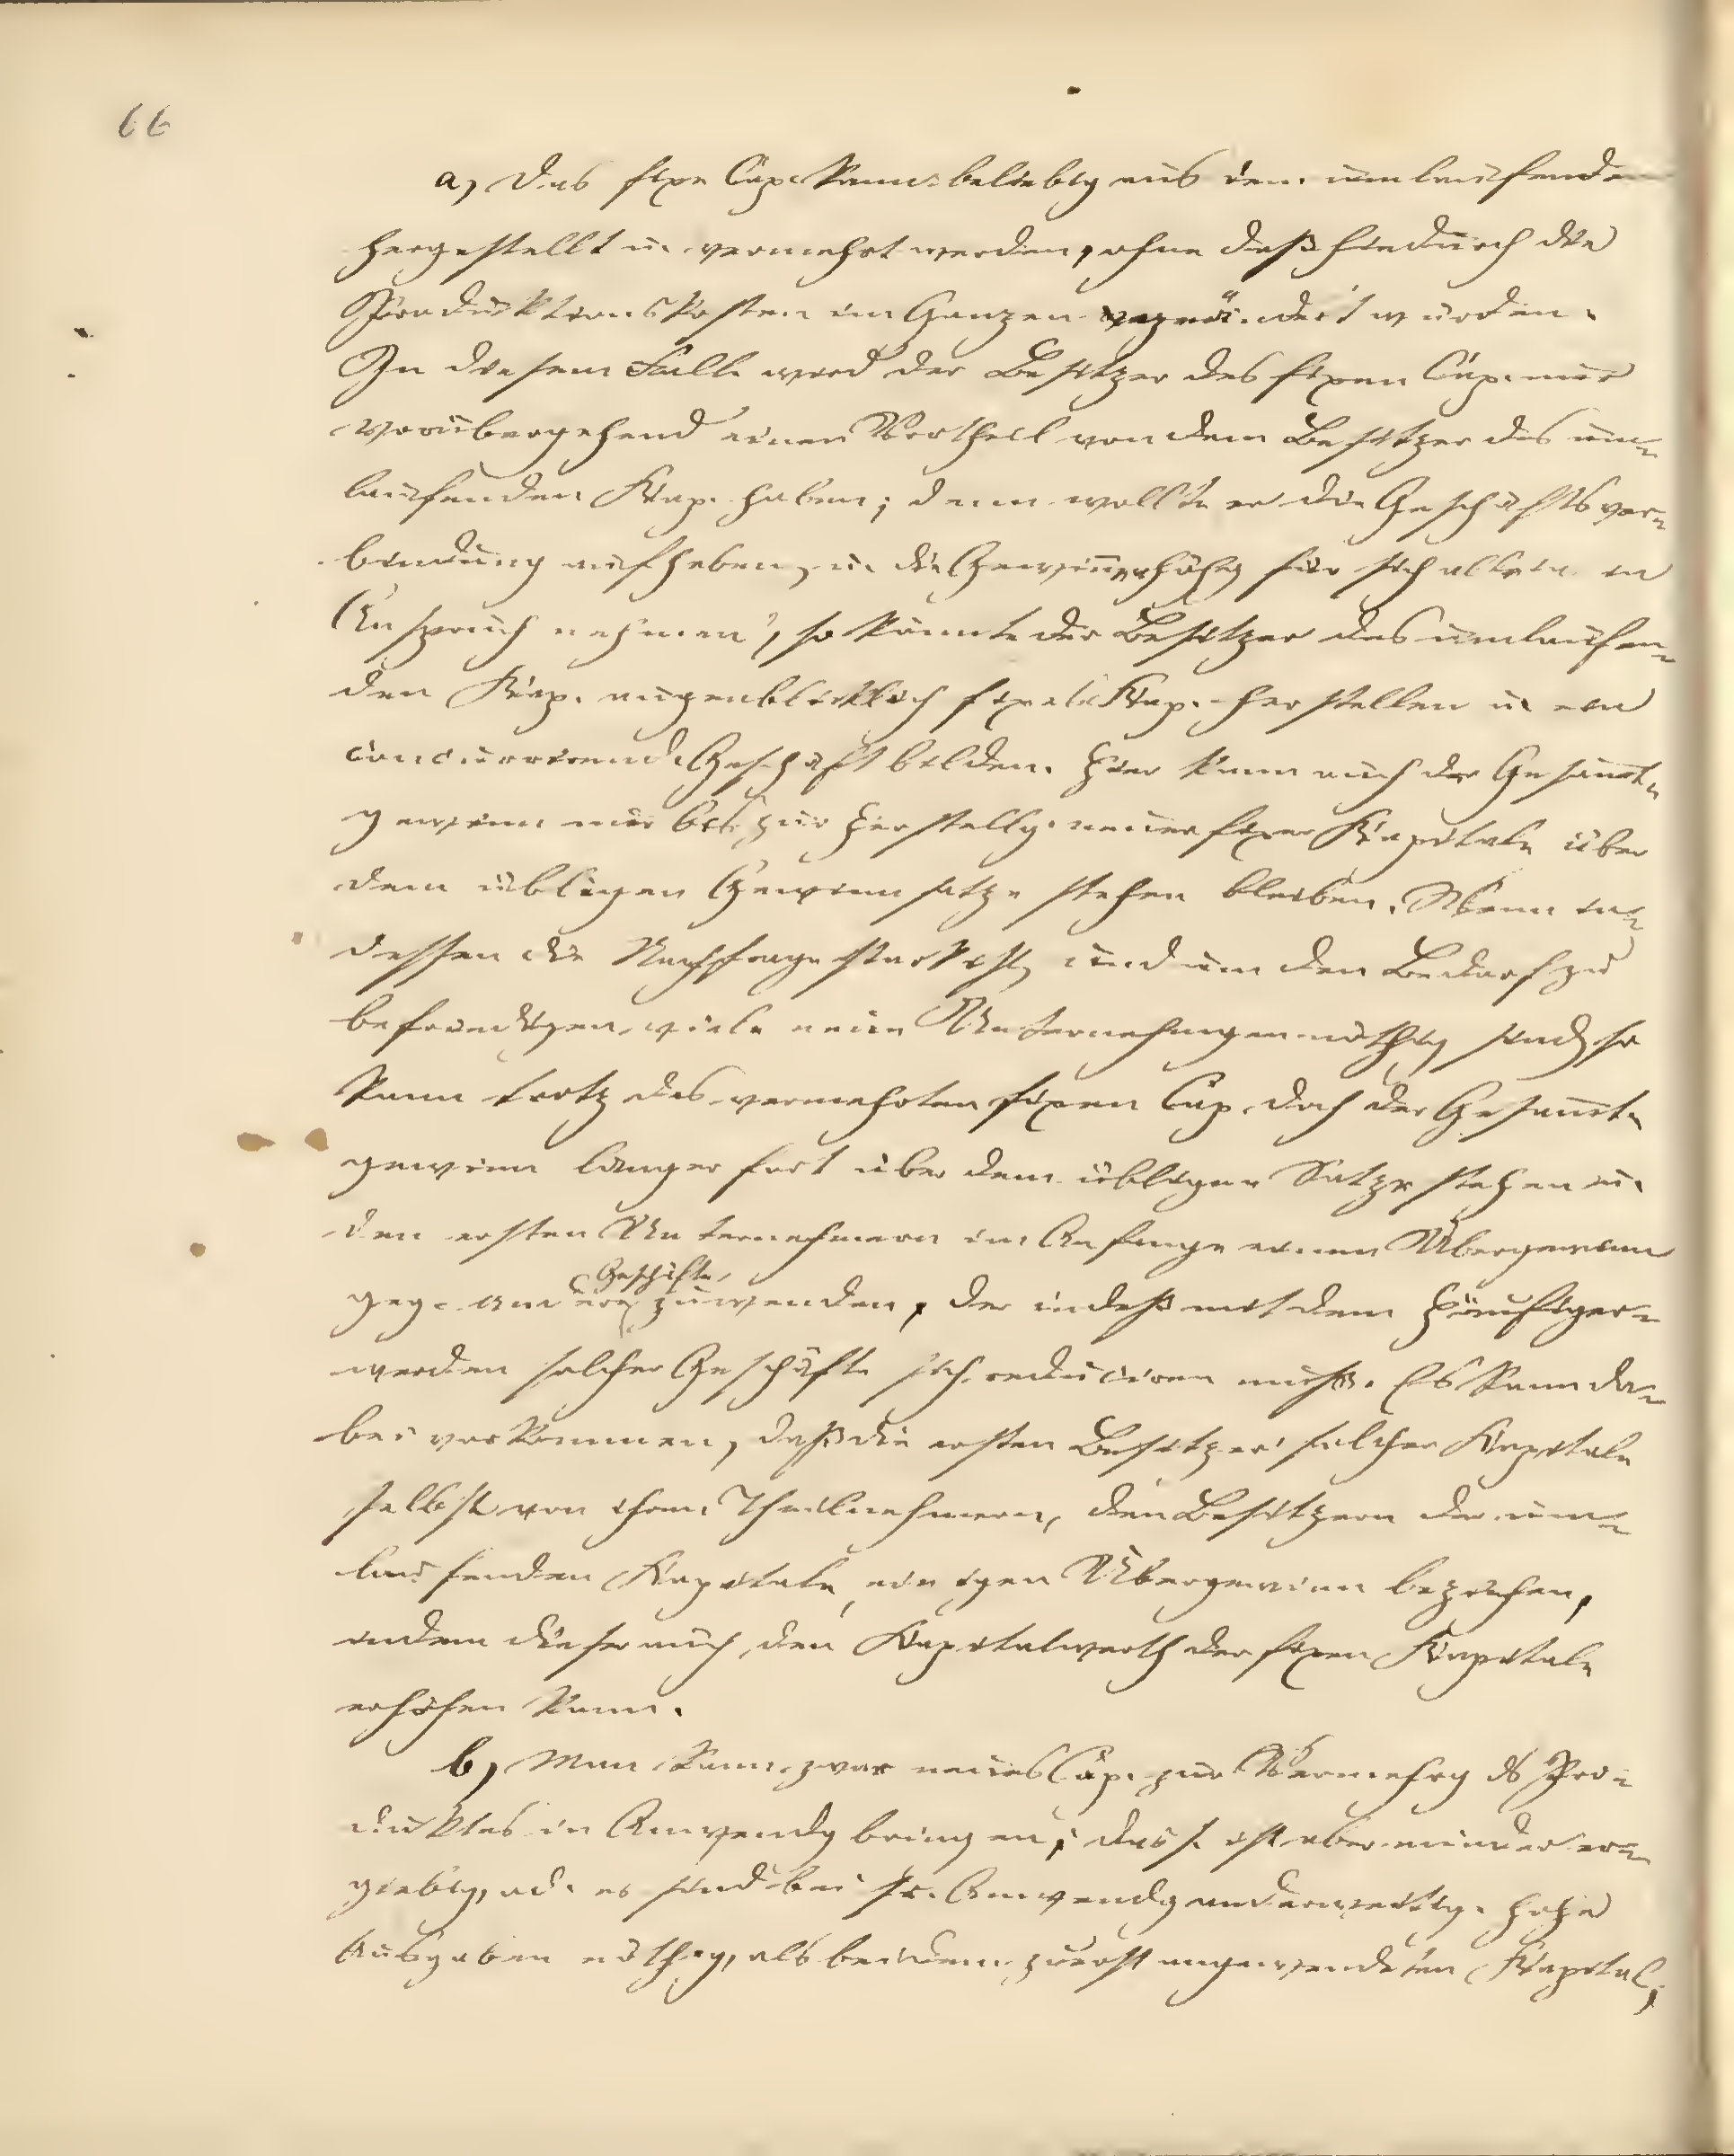 66
a, Das fixe Cap. kann beliebig aus dem umlaufenden
hergestellt u. vermehrt werden, ohne daß hiedurch die
Produktionskosten im Ganzen verändert würden.
In diesem Falle wird der Besitzer des fixen Cap. nur
vorübergehend einen Vortheil von dem Besitzer des um=
laufenden Kap. haben; denn wollte er die Geschäftsver=
bindung aufheben, u. die Gewinnerhöhg für sich allein in
Anspruch nehmen, so könnte der Besitzer des umlaufen=
den Kap. augenblicklich fixes Kap. herstellen u. ein
concurrirend. Geschäft bilden. Hier kann auch der Gesammt=
gewinn nur bis zur Herstellg. neuer fixer Kapitale über
dem übligen Gewinnsatze stehen bleiben. Wenn in=
dessen die Nachfrage stark ist, und um den Bedarf zu
befriedigen, viele neue Unternehmungen nöthig sind, so
kann trotz des vermehrten fixen Cap. doch der Gesammt=
gewinn länger fort über dem übligen Satze stehen u.
den ersten Unternehmern im Anfange einen Übergewinn
Geschäfte
geg. andere zuwenden, der indeß mit dem Häufiger=
werden solcher Geschäfte sich reduciren muß. Es kann da=
bei vorkommen, daß die ersten Besitzer solcher Kapitale
selbst von ihren Theilnehmern, den Besitzern der um=
laufenden Kapitale, einigen Übergewinn beziehen,
indem dieser auch den Kapitalwerth der fixen Kapitale
erhöhen kann.
b, Man kann zwar neues Cap. zur Vermehrg ds Pro=
duktes in Anwendg bringen; dass. ist aber minder er=
giebig, od. es sind bei sr. Anwendg anderweitig. hohe
Ausgaben nöthig, als bei dem zuerst angewendeten Kapital;